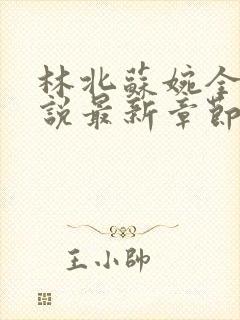 林北蘇婉全
說最新章節
王小帥